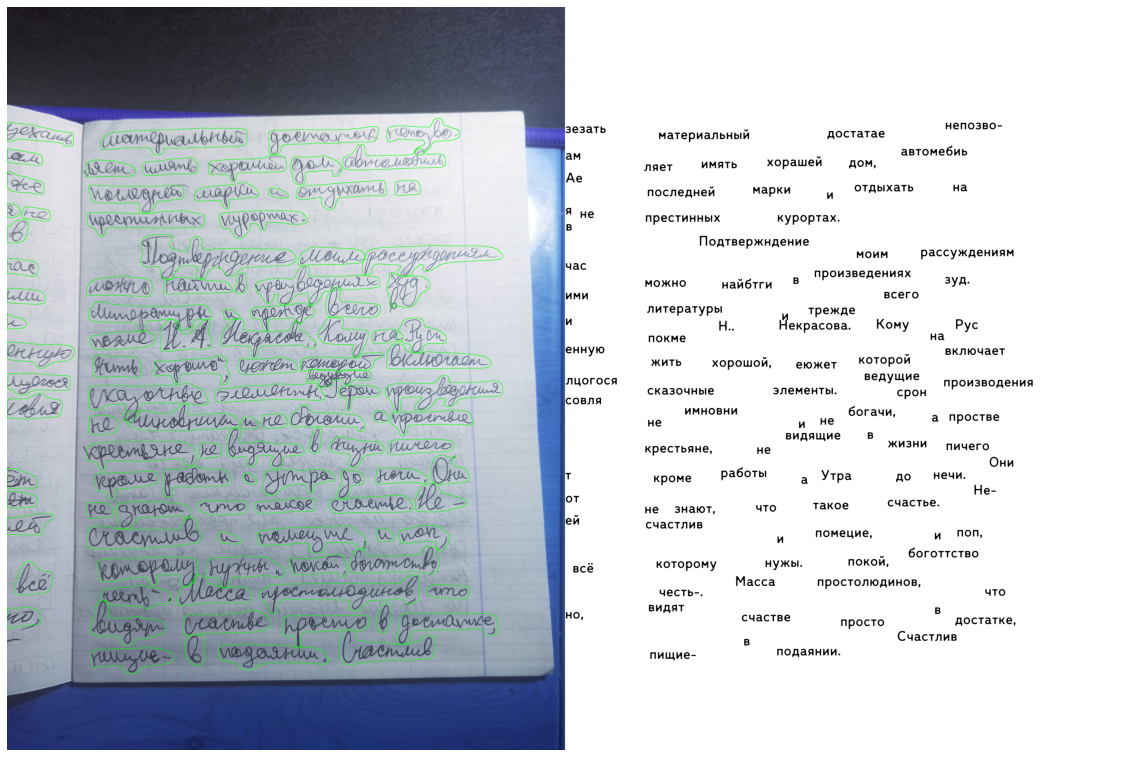 материальный достаток непозво-
ляет имять хорошей дом, автомобиль
последней марки и отдыхать на
престижных курортах.
Подтверждение моим рассуждениям
можно найти в произведениях худ.
литературы и прежде всего в
поэме Н. А. Некрасова, Кому на Руси
жить хорошо", сюжет которой включает
ведущие
сказочные элементы. Герои произведения
не чиновники и не богачи, а простые
крестьяне, не видящие в жизни ничего
кроме работы с утра до ночи. Они
не знают, что такое счастье. Не-
счастлив и помещик, и поп,
которому нужны "покой, богатство
честь". Масса простолюдинов, что
видят счастье просто в достатке,
нищие- в подаянии. Счастлив
зезать
ам
Ае
я не
в
час
ими
и
енную
лцогося
совля
т
от
ей
всё
но,
материальный достатае непозво-
ляет имять хорашей дом, автомебиь
последней марки и отдыхать на
престинных курортах.
Подтвержндение моим рассуждениям
можно найбтги в произведениях зуд.
литературы и трежде всего
покме Н.. Некрасова. Кому на Рус
жить хорошой, еюжет которой включает
сказочные элементы. ведущие срон производения
не имновни и не богачи, а простве
крестьяне, не видящие в жизни пичего
кроме работы а Утра до нечи. Они
не знают, что такое счастье. Не-
счастлив и помецие, и поп,
которому нужы. покой, боготтство
честь-. Масса простолюдинов, что
видят счастве просто в достатке,
пищие- в подаянии. Счастлив